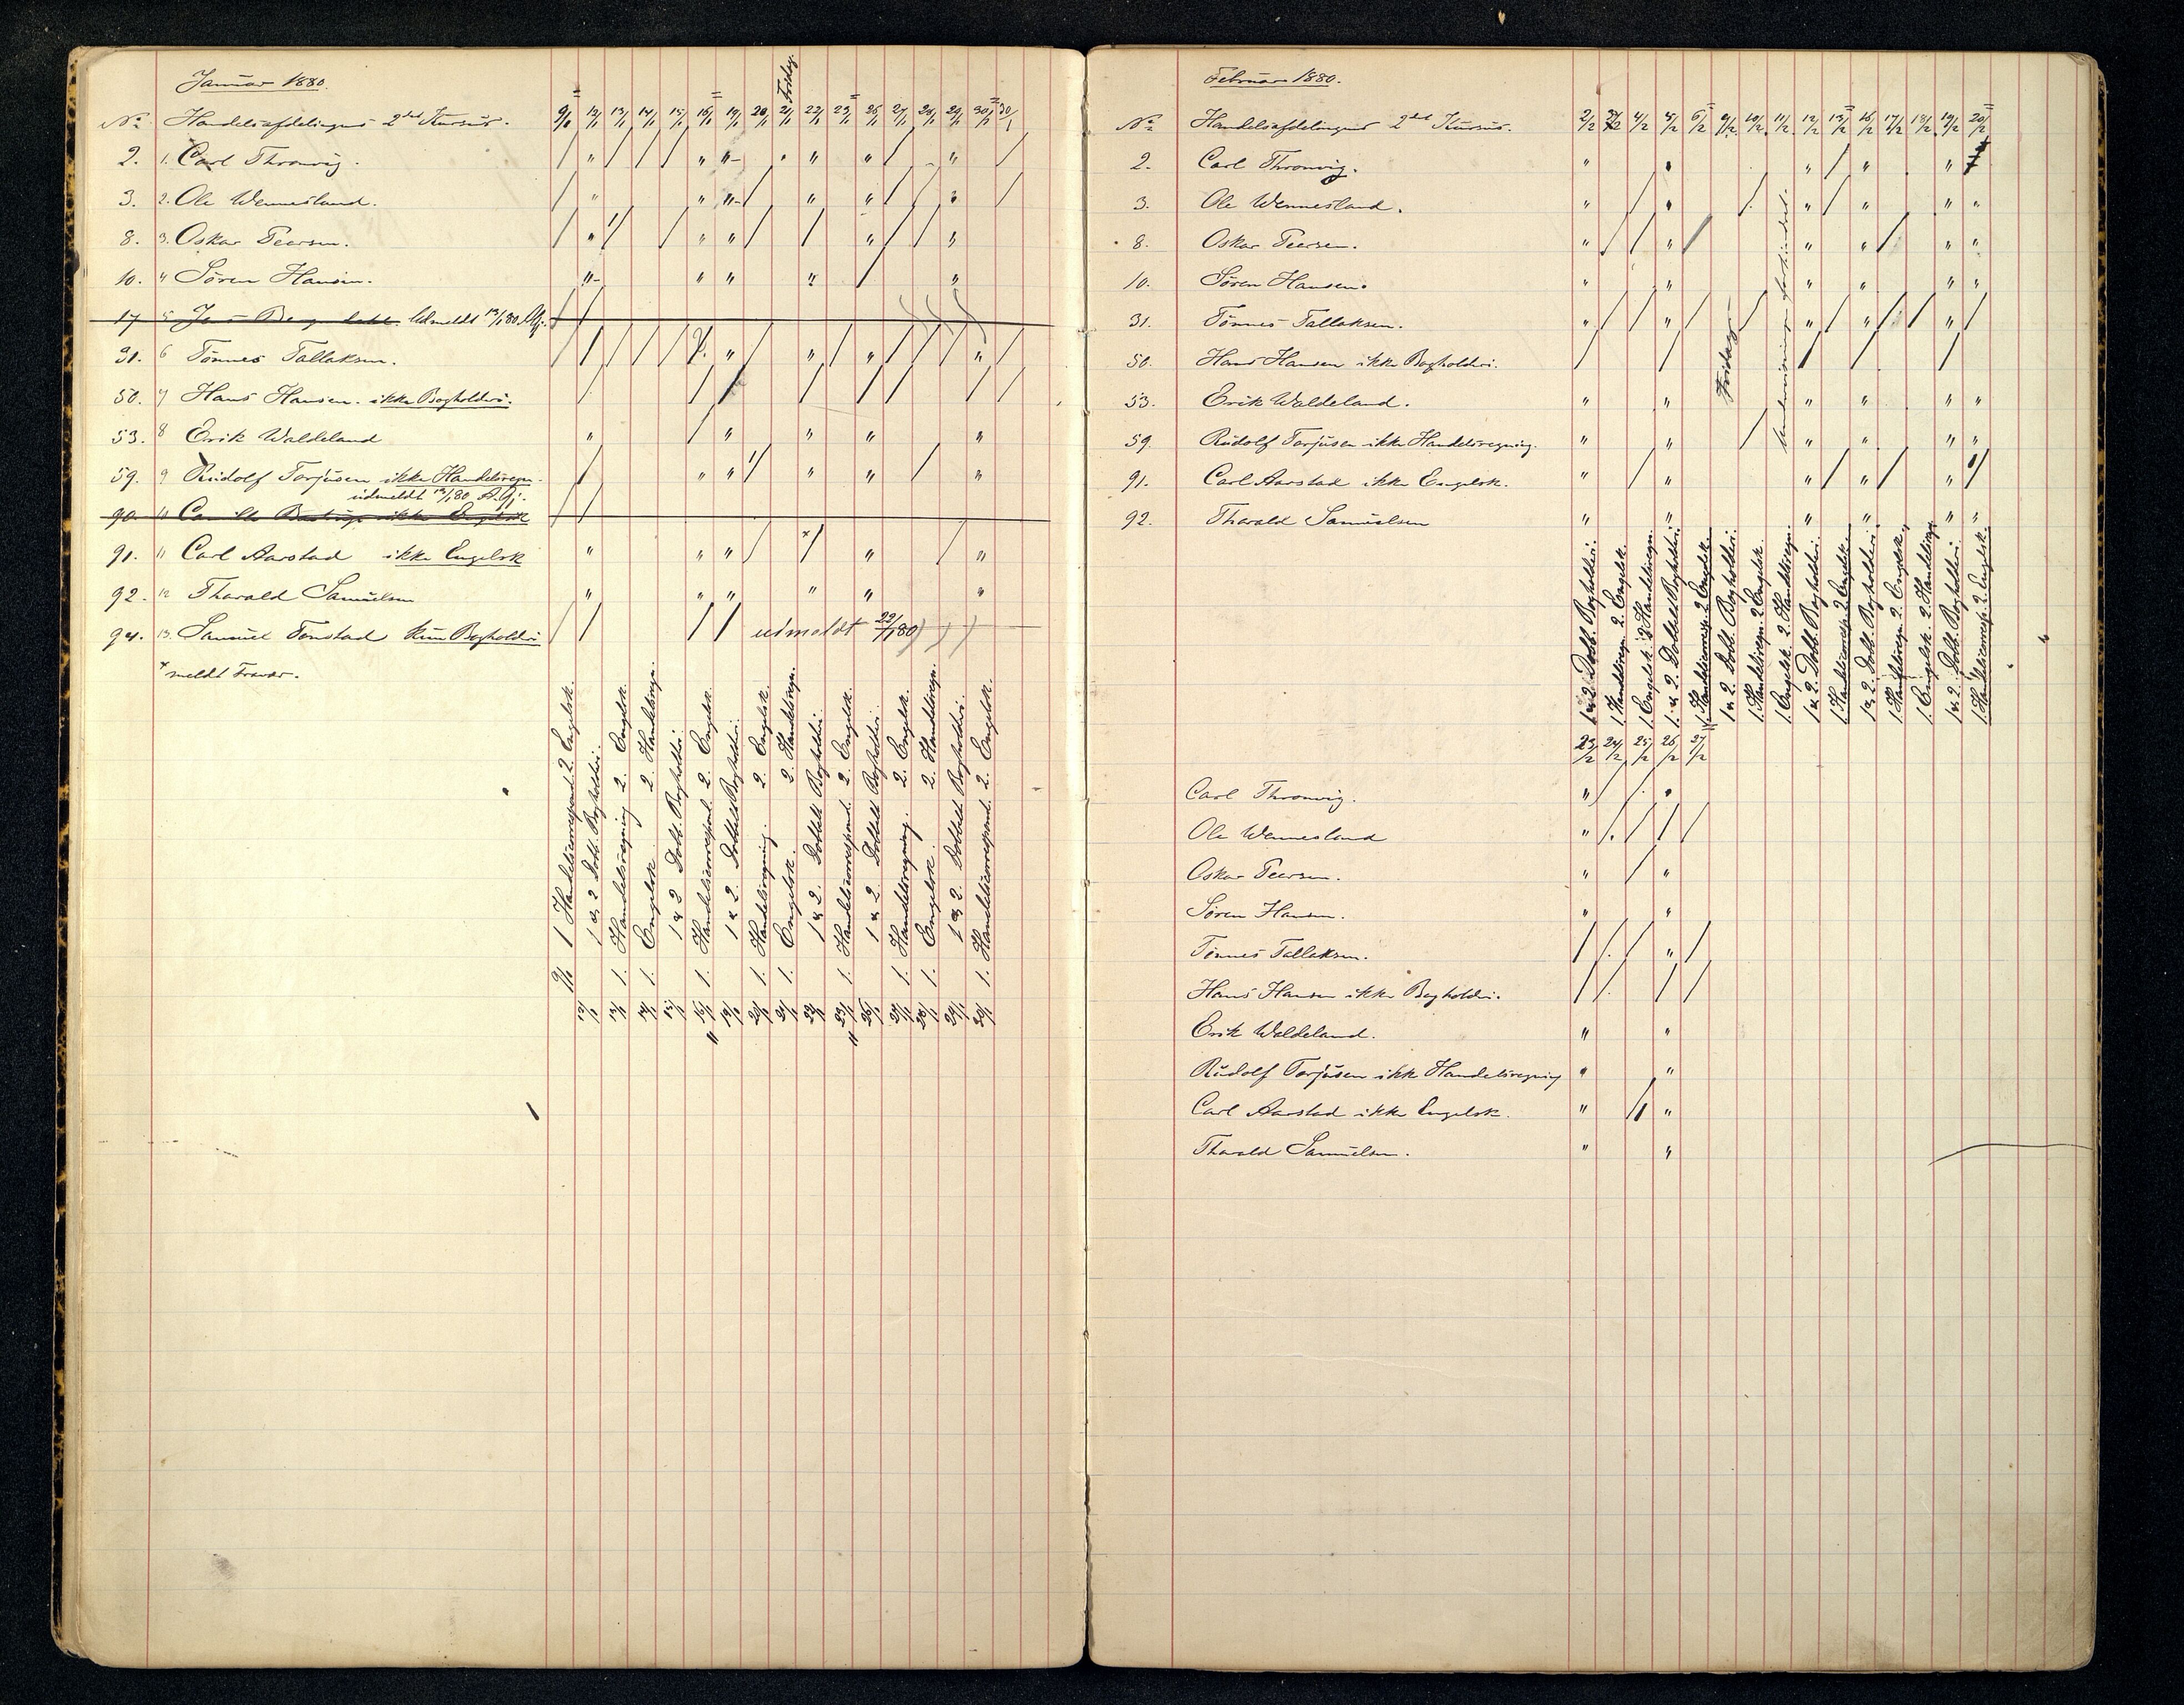 Januar 1880.
No. Handelsafdelingens 2det Kursus. 9/1 12/1 13/1 14/1 15/1 16/1 19/1 20/1 21/1 22/1 23/1 26/1 27/1 28/1 29/1 30/1 30/1
Fridag
2. 1. Carl Thronvig.
3. 2. Ole Wennesland.
8. 3. Oskar Peersen.
10. 4 Søren Hansen.
17 5 Udmeldt 13/1 80
31. 6 Tønnes Tallaksen.
50. 7 Hans Hansen. ikke Bogholderi.
53. 8 Erik Waldeland
59. 9 Rudolf Torjusen ikke Handelsregn.
udmeldt 12/1 80
90. ikke Engelsk
91. 11 Carl Aarstad ikke Engelsk
92. 12 Tharald Samuelsen
94. 13. Samuel Fonstad kun Bogholderi udmeldt 22/1 80
x meldt Fravær.
9/1 1 Handelscorrespond. 2 Engelsk.
12/1 1 og 2 Dobb. Bogholderi.
13/1 1. Handelsregning 2. Engelsk.
14/1 1. Engelsk. 2. Handelsregn.
15/1 1 & 2 Dobb. Bogholderi.
16/1 1. Handelscorrespond. 2. Engelsk.
19/1 1 & 2. Dobbelt Bogholderi.
20/1 1. Handelsregning. 2. Engelsk.
21/1 1. Engelsk. 2. Handelsregn.
22/1 1 & 2. Dobbelt Bogholderi.
23/1 1. Handelscorrespond. 2. Engelsk.
26/1 1 & 2. Dobbelt Bogholderi.
27/1 1. Handelsregning. 2. Engelsk.
28/1 1. Engelsk. 2. Handelsregn.
29/1 1 og 2. Dobbelt Bogholderi.
30/1 1. Handelscorrespond. 2. Engelsk.
Februar 1880.
No. Handelsafdelingens 2det Kursus. 2/2 3/2 4/2 5/2 6/2 9/2 10/2 11/2 12/2 13/2 16/2 17/2 18/2 19/2 20/2
2. Carl Thronvig.
3. Ole Wennesland.
8. Oskar Peersen.
10. Søren Hansen.
31. Tønnes Tallaksen.
50. Hans Hansen ikke Bogholderi.
53. Erik Waldeland.
59. Rudolf Torjusen ikke Handelsregning.
91. Carl Aarstad ikke Engelsk.
92. Tharald Samuelsen
Fridag
Undervisning forhindret.
1 & 2 Dobb. Bogholderi.
1. Handelsregn. 2. Engelsk.
1. Engelsk. 2. Handelsregn.
1. & 2. Dobbelt Bogholderi.
1. Handelscorresp. 2. Engelsk.
1 & 2. Dobb. Bogholderi.
1. Handelsregn. 2. Engelsk.
1. Engelsk. 2. Handelsregn.
1 & 2. Dobb. Bogholderi.
1. Handelscorresp. 2. Engelsk.
1 & 2. Dobb. Bogholderi.
1. Handelsregn. 2. Engelsk.
1. Engelsk. 2. Handelsregn.
1 & 2. Dobb. Bogholderi.
1. Handelscorresp. 2. Engelsk.
23/2 24/2 25/2 26/2 27/2
Carl Thronvig.
Ole Wennesland
Oskar Peersen.
Søren Hansen.
Tønnes Tallaksen.
Hans Hansen ikke Bogholderi.
Erik Waldeland.
Rudolf Torjusen ikke Handelsregning
Carl Aarstad ikke Engelsk.
Tharald Samuelsen.